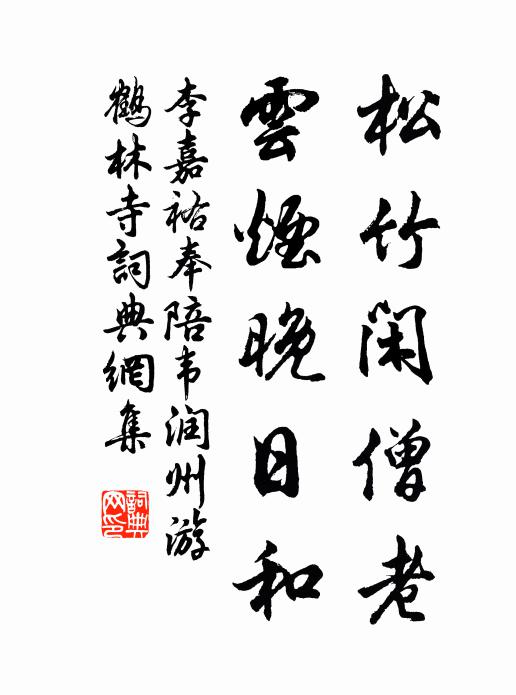 松竹閑僧老
雲煙晚日和
李嘉祐奉陪韦润州游
鶴林寺詞典網集
詞典网印